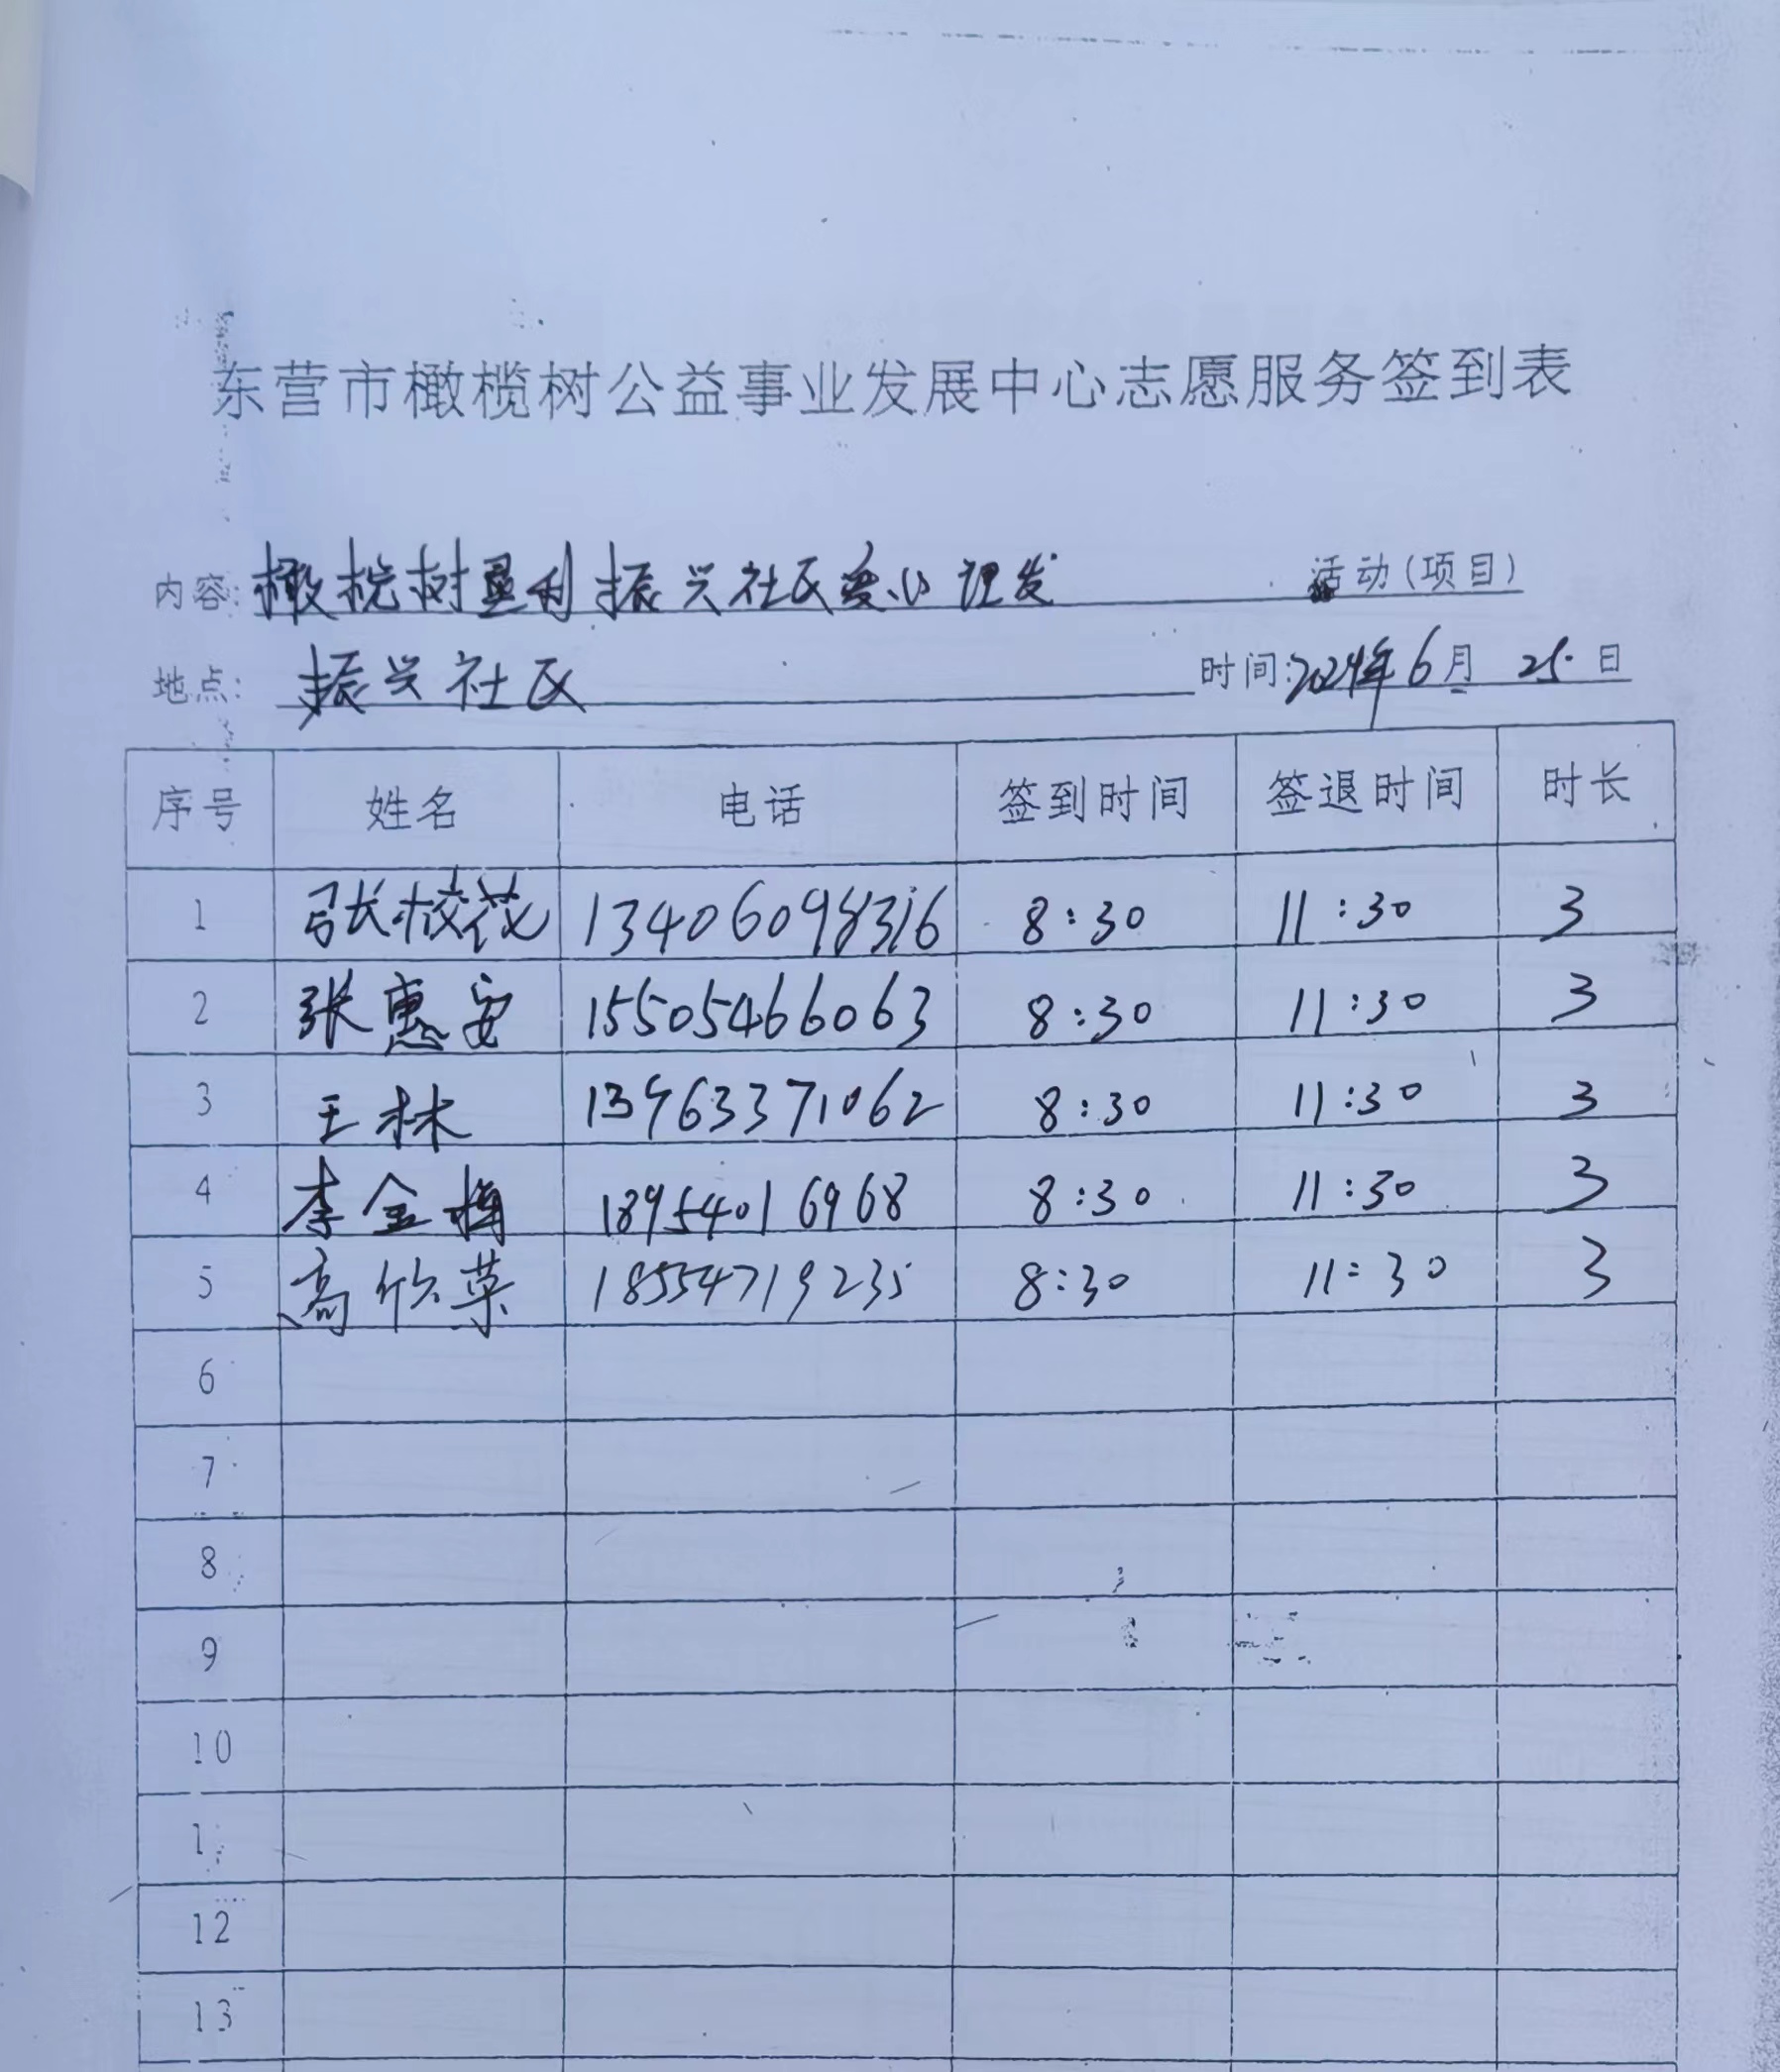 东营市橄榄树公益事业发展中心志愿服务签到表
内容: 橄榄树垦利振兴社区爱心理发 活动(项目)
地点: 振兴社区 时间:2024年6月25日
序号 姓名 电话 签到时间 签退时间 时长
1 张校花 13406098316 8:30 11:30 3
2 张惠安 15505466063 8:30 11:30 3
3 王林 13963371062 8:30 11:30 3
4 李金梅 18954016968 8:30 11:30 3
5 高欣菜 18554719235 8:30 11:30 3
6
7
8
9
10
1
12
13